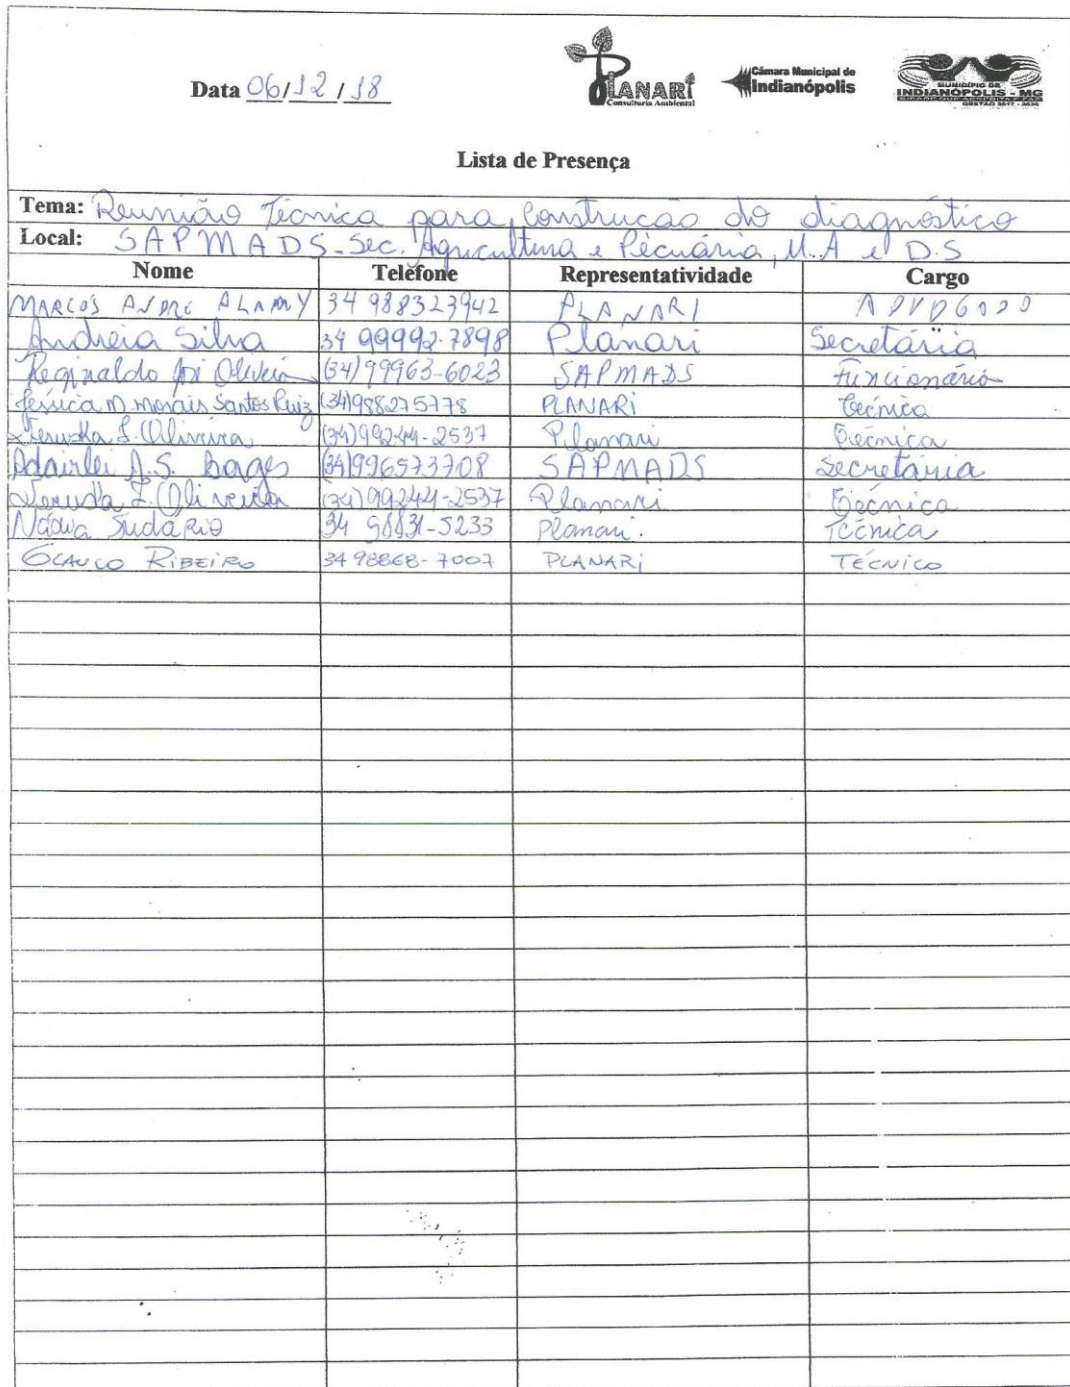 Data 06/12/18
PLANARI
Consultoria Ambiental
Câmara Municipal de
Indianópolis
MUNICÍPIO DE
INDIANÓPOLIS - MG
GESTÃO 2017 - 2020
Lista de Presença
Tema: Reunião Técnica para Construcao do diagnóstico
Local: SAPMADS-Sec. Agricultura e Pécuária, M.A e D.S
Nome Telefone Representatividade Cargo
MARCOS ANDRÉ ALAMY 34 988323942 PLANARI
Andreia Silva 34 99992-7898 Planari Secretária
Reginaldo José Oliveira (34) 99963-6023 SAPMADS Funcionário
Jéssica M. Morais Santos Ruiz (34)988275778 PLANARI Técnica
Jeruska L. Oliveira (34)99244-2537 Planari Técnica
Adairlei A.S. Borges (34)996573708 SAPMADS Secretária
Jeruska L. Oliveira (34) 99244-2537 Planari Técnica
Nádia Sudário 34 98831-5233 Planari. Técnica
GLAUCO RIBEIRO 34 98868-7007 PLANARI TÉCNICO